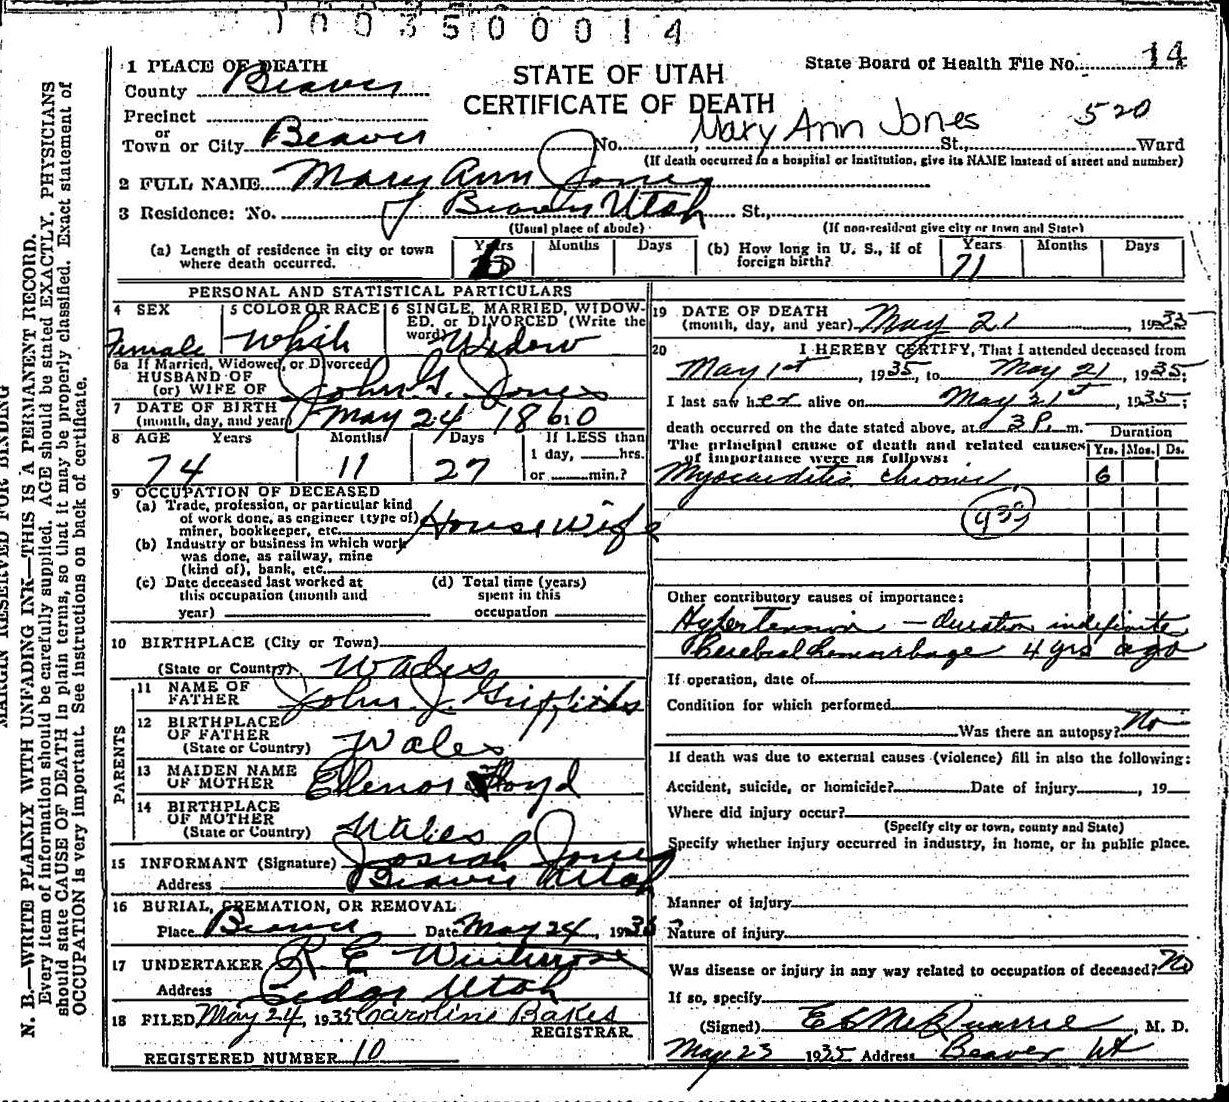 1003500014
1 PLACE OF DEATH
County Beaver
STATE OF UTAH
CERTIFICATE OF DEATH
State Board of Health File No. 14
Precinct
Town or City Beaver No. Mary Ann Jones St., Ward 520
(If death occurred in a hospital or institution, give its NAME instead of street and number)
2 FULL NAME Mary Ann Jones
3 Residence: No. Beaver Utah St.,
(Usual place of abode) (If non-resident give city or town and State)
(a) Length of residence in city or town where death occurred. Years Months Days
(b) How long in U. S., if of foreign birth? Years 71 Months Days
PERSONAL AND STATISTICAL PARTICULARS
4 SEX Female
5 COLOR OR RACE White
6 SINGLE, MARRIED, WIDOWED, or DIVORCED (Write the word) Widow
6a If Married, Widowed, or Divorced
HUSBAND OF
(or) WIFE OF John G. Jones
7 DATE OF BIRTH
(month, day, and year) May 24 1860
8 AGE Years 74 Months 11 Days 27 If LESS than
1 day, hrs.
or min.?
9 OCCUPATION OF DECEASED
(a) Trade, profession, or particular kind
of work done, as engineer (type of)
miner, bookkeeper, etc. House Wife
(b) Industry or business in which work
was done, as railway, mine
(kind of), bank, etc.
(c) Date deceased last worked at
this occupation (month and
year)
(d) Total time (years)
spent in this
occupation
10 BIRTHPLACE (City or Town)
(State or Country) Wales
PARENTS
11 NAME OF
FATHER John J. Griffiths
12 BIRTHPLACE
OF FATHER
(State or Country) Wales
13 MAIDEN NAME
OF MOTHER Ellenor Floyd
14 BIRTHPLACE
OF MOTHER
(State or Country) Wales
15 INFORMANT (Signature) Josiah Jones
Address Beaver Utah
16 BURIAL, CREMATION, OR REMOVAL
Place Beaver Date May 24, 1935
17 UNDERTAKER R. E.
Address Cedar Utah
18 FILED May 24, 1935 Caroline Bakes
REGISTRAR
REGISTERED NUMBER 10
19 DATE OF DEATH
(month, day, and year) May 21, 1935
20 I HEREBY CERTIFY, That I attended deceased from
May 1st, 1935, to May 21, 1935;
I last saw her alive on May 21st, 1935;
death occurred on the date stated above, at 3 P. m.
Duration
The principal cause of death and related causes
of importance were as follows: Yrs. Mos. Ds.
Myocarditis chronic 6
Other contributory causes of importance:
Hypertension - duration indefinite
Cerebral hemorrhage 4 yrs ago
If operation, date of
Condition for which performed
Was there an autopsy? No
If death was due to external causes (violence) fill in also the following:
Accident, suicide, or homicide? Date of injury , 19
Where did injury occur?
(Specify city or town, county and State)
Specify whether injury occurred in industry, in home, or in public place.
Manner of injury
Nature of injury
Was disease or injury in any way related to occupation of deceased? No
If so, specify
(Signed) E C McQuarrie, M. D.
May 23 1935 Address Beaver Ut
MARGIN RESERVED FOR BINDING
N. B.—WRITE PLAINLY WITH UNFADING INK—THIS IS A PERMANENT RECORD.
Every item of information should be carefully supplied. AGE should be stated EXACTLY. PHYSICIANS
should state CAUSE OF DEATH in plain terms, so that it may be properly classified. Exact statement of
OCCUPATION is very important. See instructions on back of certificate.